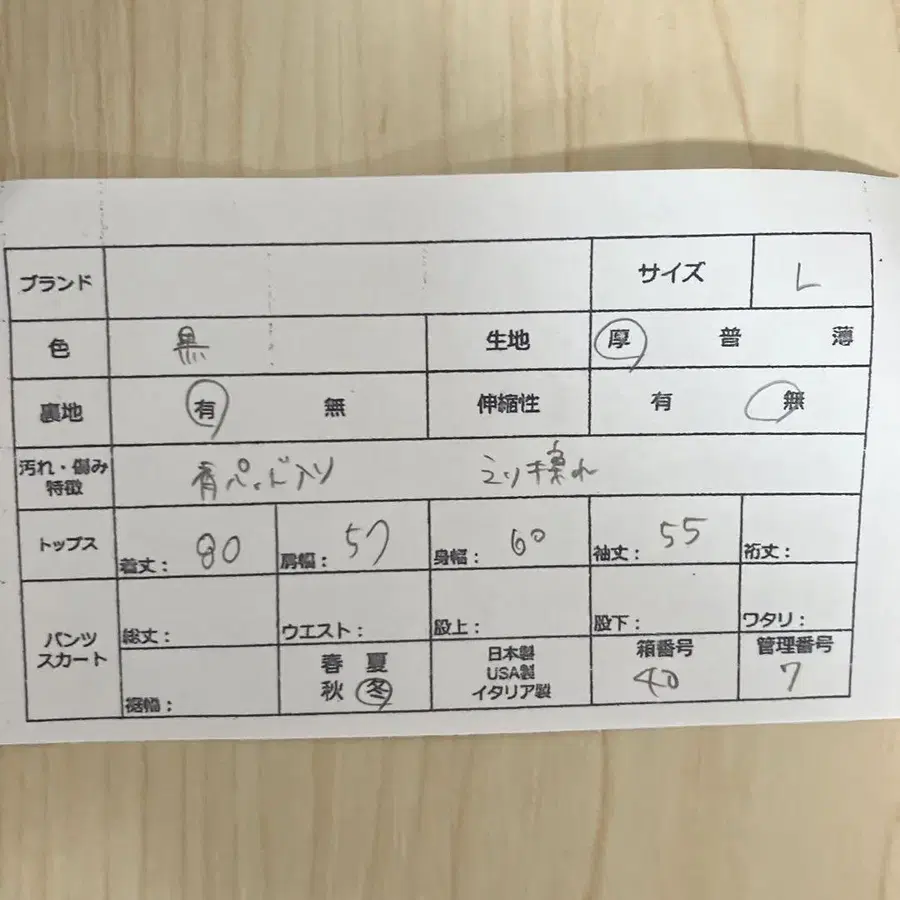 ブランド サイズ L
色 黒 生地 厚 普 薄
裏地 有 無 伸縮性 有 無
汚れ・傷み
特徴 肩パッド入り エリ擦れ
トップス 着丈: 80 肩幅: 57 身幅: 60 袖丈: 55 裄丈:
パンツ
スカート 総丈: ウエスト: 股上: 股下: ワタリ:
裾幅: 春 夏
秋 冬
日本製
USA製
イタリア製
箱番号 管理番号
40 7